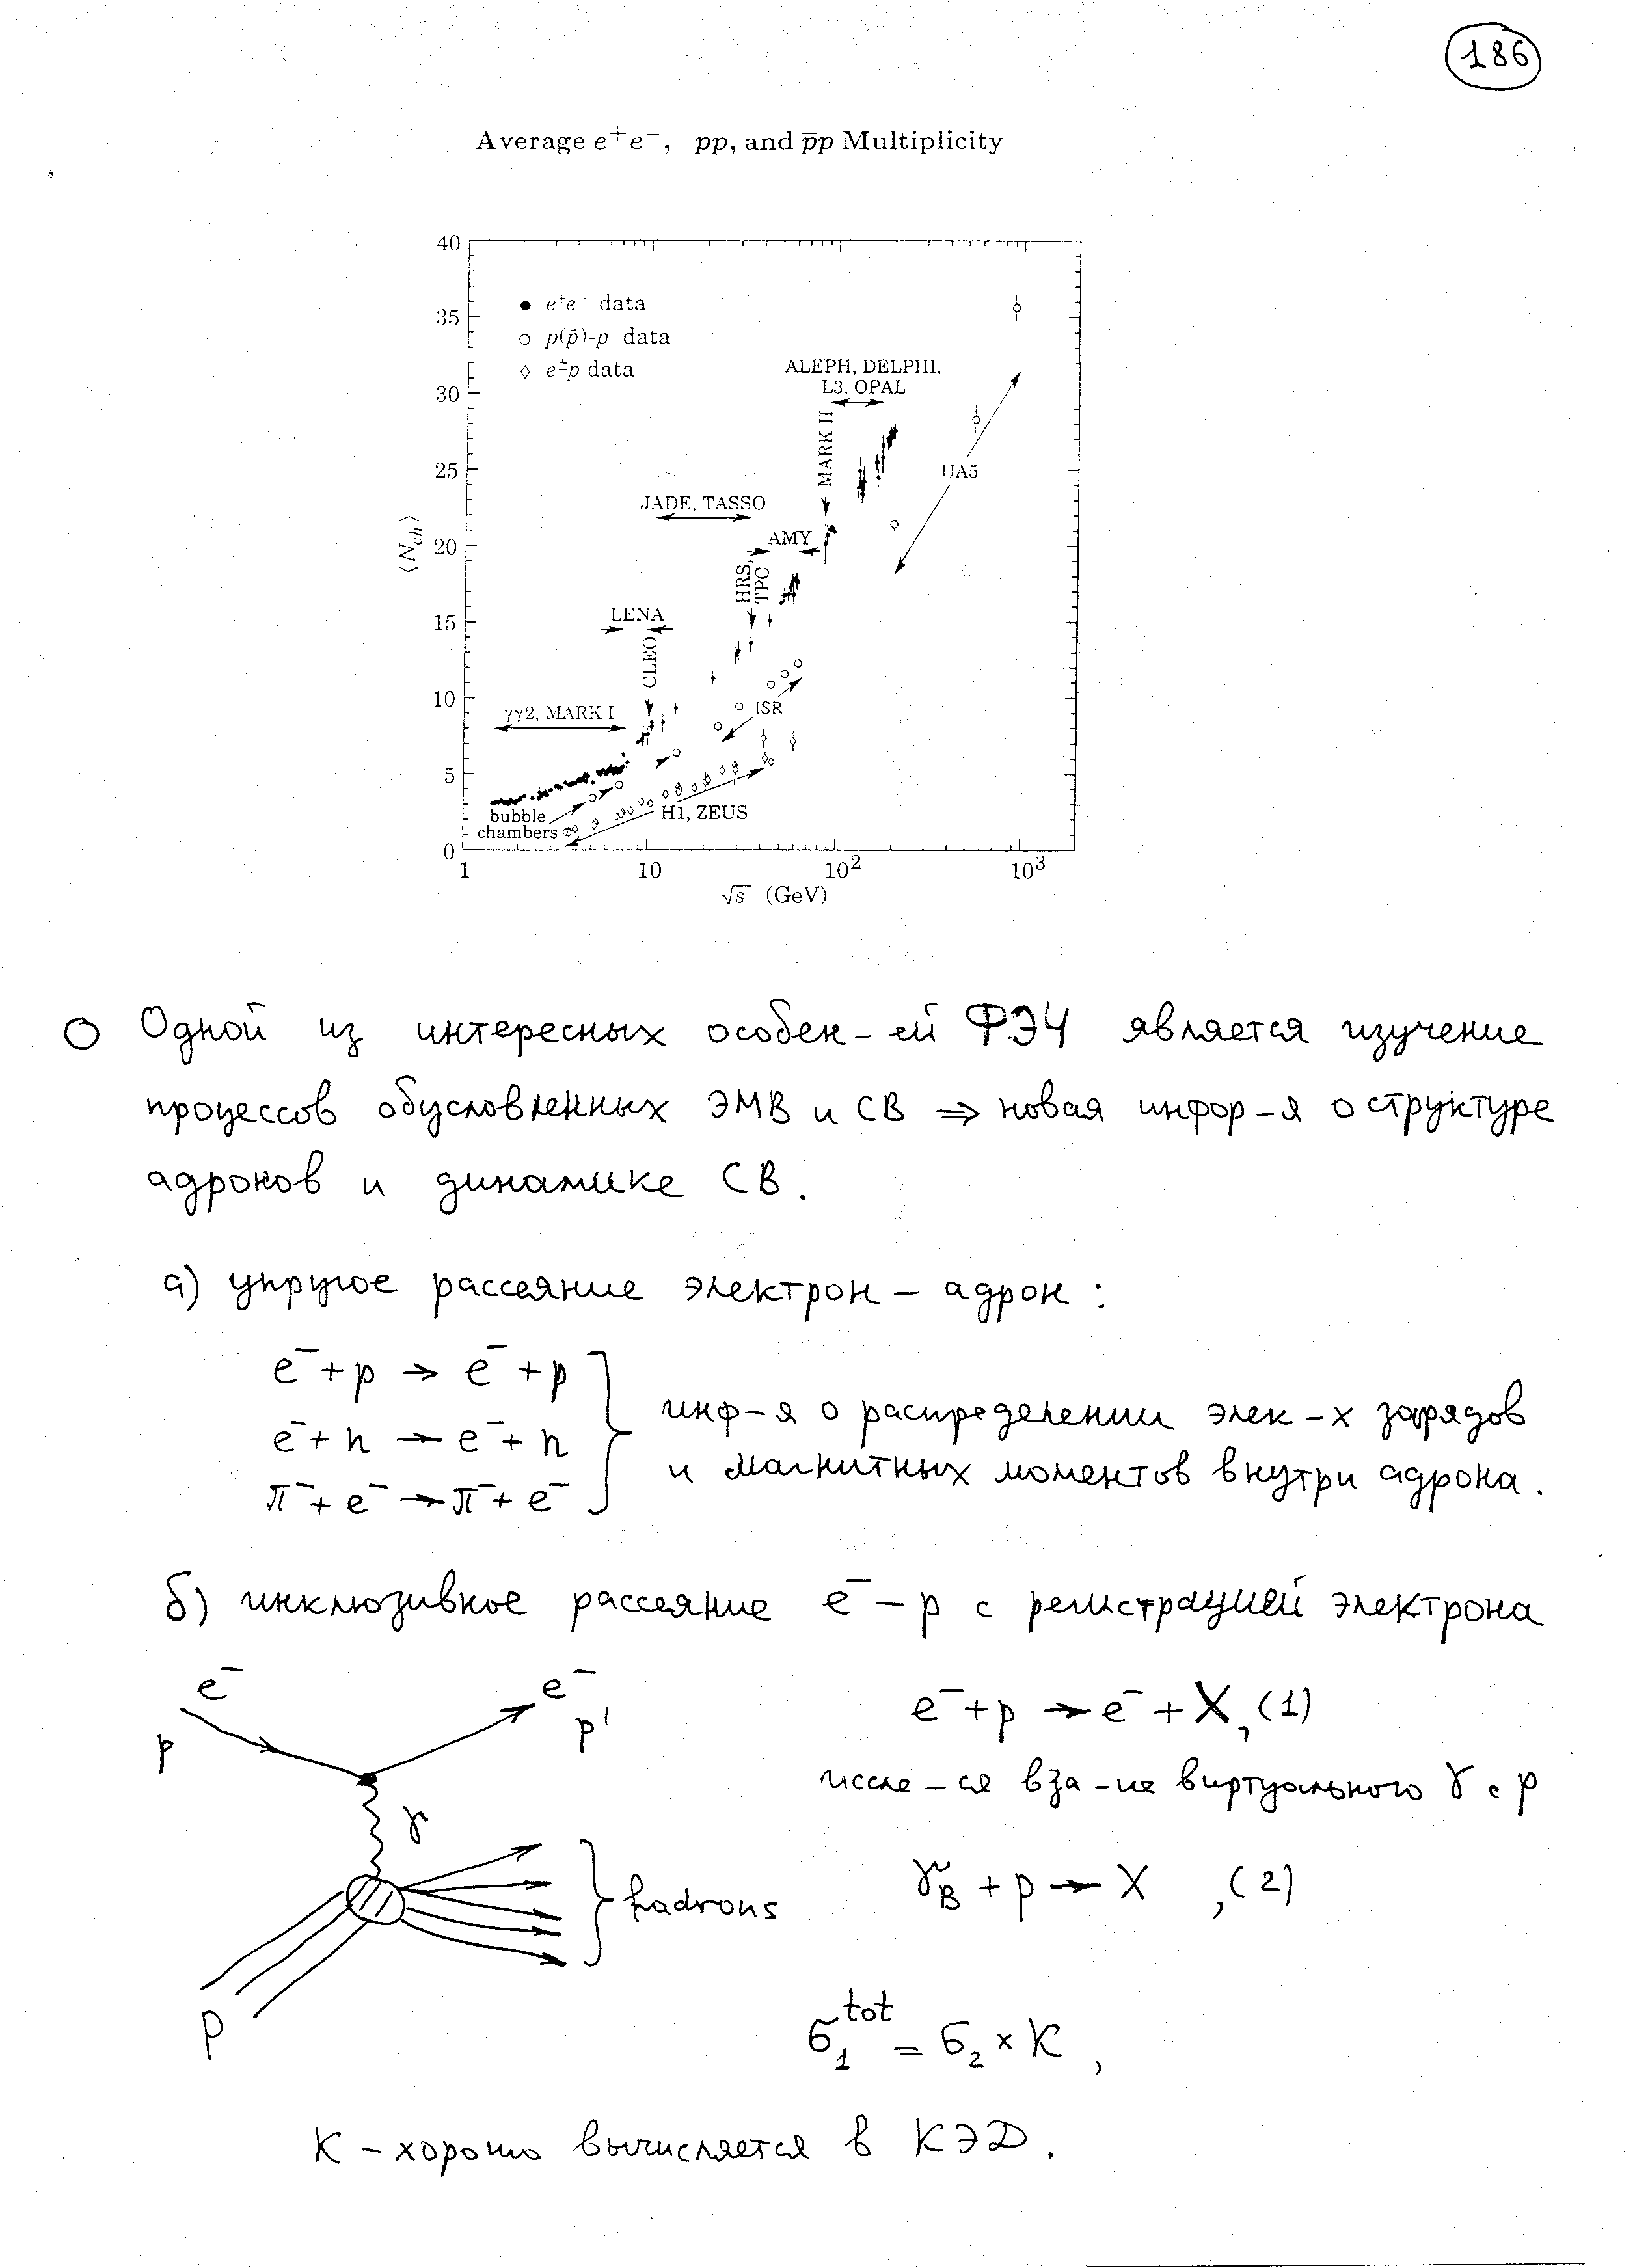 186
Average e⁺e⁻, pp, and p̄p Multiplicity
40
35
30
25
20
15
10
5
0
⟨N_ch⟩
● e⁺e⁻ data
○ p(p̄)-p data
◊ e±p data
ALEPH, DELPHI,
L3, OPAL
MARK II
UA5
JADE, TASSO
AMY
HRS,
TPC
LENA
CLEO
γγ2, MARK I
ISR
bubble
chambers
H1, ZEUS
1 10 10² 10³
√s (GeV)
○ Одной из интересных особен-ей ФЭЧ является изучение
процессов обусловленных ЭМВ и СВ ⇒ новая инфор-я о структуре
адронов и динамике СВ.
а) упругое рассеяние электрон – адрон :
e⁻ + p → e⁻ + p
e⁻ + n → e⁻ + n
π⁻ + e⁻ → π⁻ + e⁻
инф-я о распределении элек-х зарядов
и магнитных моментов внутри адрона.
б) инклюзивное рассеяние e⁻ – p с регистрацией электрона
e⁻
e⁻
p
p'
γ
hadrons
p
e⁻ + p → e⁻ + X, (1)
иссле-ся вза-ие виртуального γ с p
γ_В + p → X , (2)
σ₁^tot = σ₂ × K ,
K – хорошо вычисляется в КЭД.